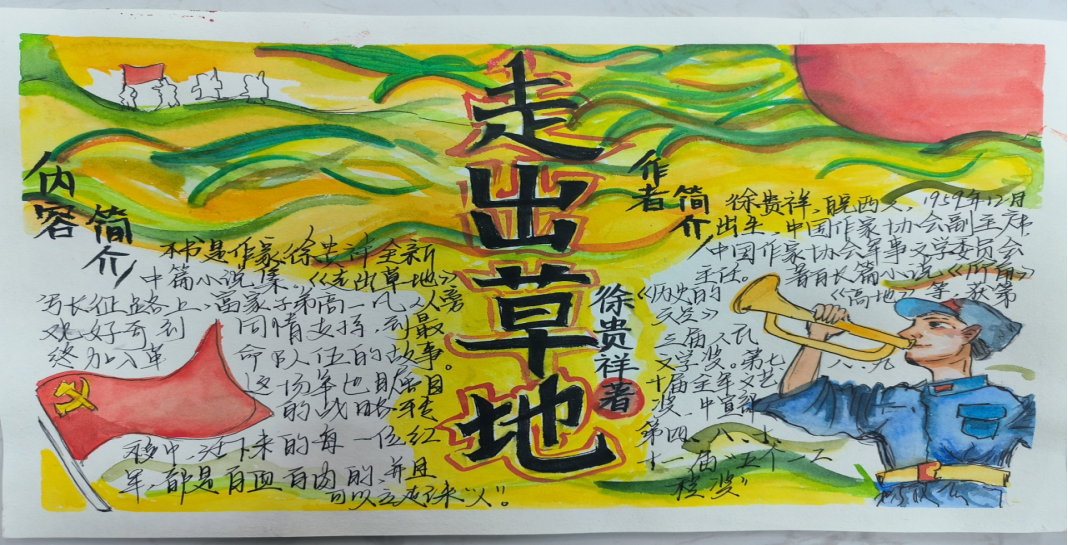 走出草地
徐贵祥
著
内容
简介
本书是作家徐贵祥全新
中篇小说集。《走出草地》
写长征路上,富家子弟高一凡从旁
观好奇到 同情支持,到最
终加入革 命队伍的故事。
这场举世瞩目
的战略转
移中,活下来的每一位红
军,都是有血有肉的,并且
可以立起来"人"。
作者
简介
徐贵祥,皖西人,1959年12月
出生,中国作家协会副主席
中国作家协会军事文学委员会
主任。 著有长篇小说《历史的
《高地》等,获第
天空》
七、八、九
三届人民
文学奖。第
十届全军文艺
奖、中宣部
第四、八、十、
十一届"五个一工
程奖"